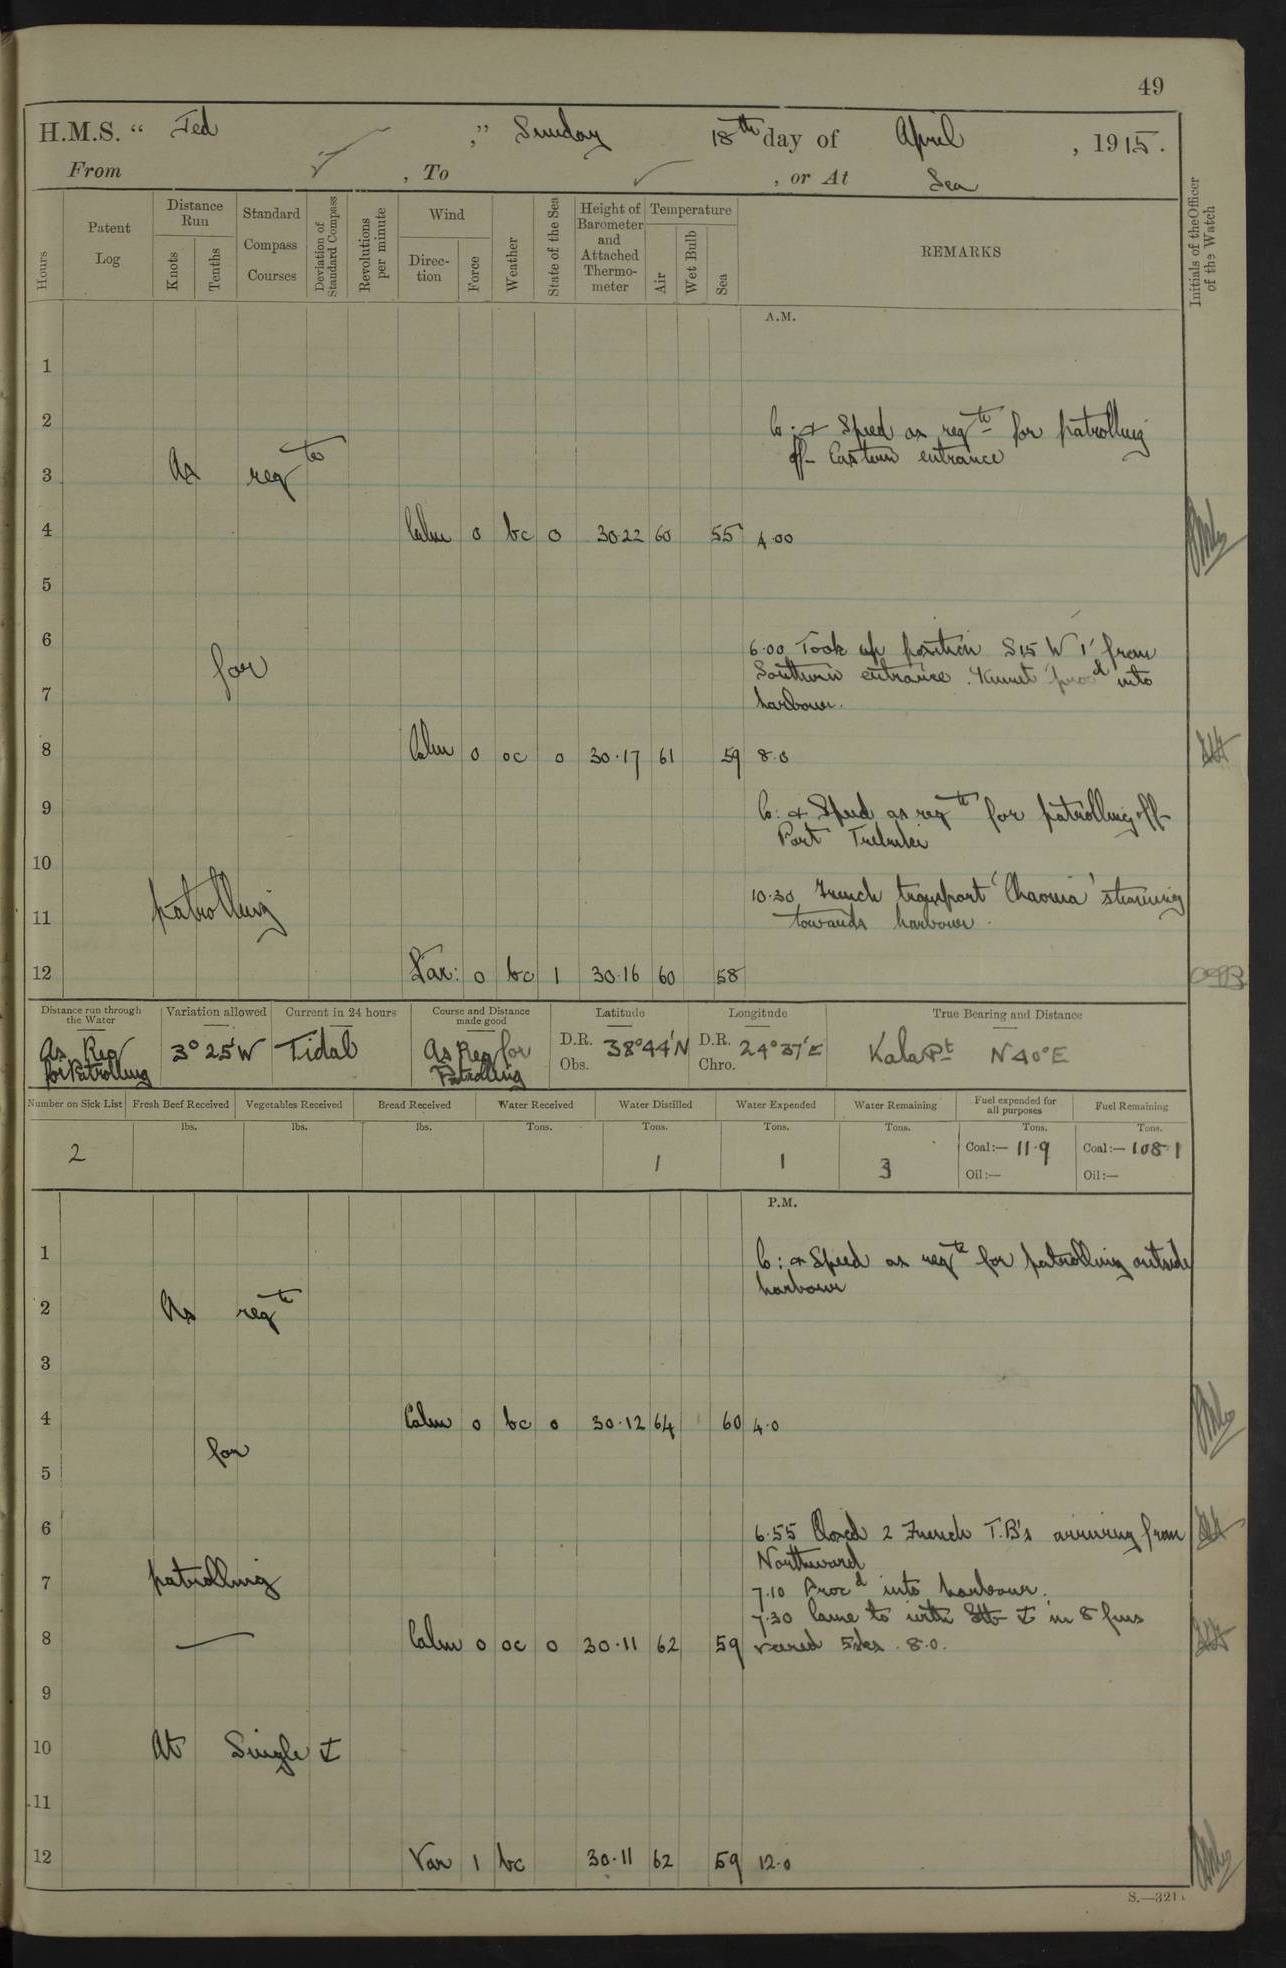 49
H.M.S. “ Jed ,” Sunday 18th day of April , 1915.
From ✓ , To ✓ , or At Sea
Hours
Patent Log
Distance Run
Knots
Tenths
Standard Compass Courses
Deviation of Standard Compass
Revolutions per minute
Wind
Direction
Force
Weather
State of the Sea
Height of Barometer and Attached Thermometer
Temperature
Air
Wet Bulb
Sea
REMARKS
Initials of the Officer of the Watch
A.M.
1
2 Co: & Speed as reqte for patrolling
off Eastern entrance
3 As reqte
4 Calm 0 bc 0 30.22 60 55 4.00
5
6 6.00 Took up position S15W 1' from
for Southern entrance. Kennet procd into
7 harbour.
8 Calm 0 oc 0 30.17 61 59 8.0
9 Co: & Speed as reqte for patrolling off
Port Trebuki
10
patrolling 10.30 French transport 'Chaouia' steaming
11 towards harbour.
12 Var: 0 bc 1 30.16 60 58
Distance run through the Water
As Req for Patrolling
Variation allowed
3° 25'W
Current in 24 hours
Tidal
Course and Distance made good
As Req for Patrolling
Latitude
D.R. 38°44'N
Obs.
Longitude
D.R. 24°37'E
Chro.
True Bearing and Distance
Kala Pt N40°E
Number on Sick List
2
Fresh Beef Received
lbs.
Vegetables Received
lbs.
Bread Received
lbs.
Water Received
Tons.
Water Distilled
Tons.
1
Water Expended
Tons.
1
Water Remaining
Tons.
3
Fuel expended for all purposes
Tons.
Coal:— 11.9
Oil:—
Fuel Remaining
Tons.
Coal:— 108.1
Oil:—
P.M.
1 Co: & Speed as reqte for patrolling outside
harbour
2 As reqte
3
4 Calm 0 bc 0 30.12 64 60 4.0
for
5
6 6.55 Closed 2 French T.B's arriving from
Northward
7 patrolling 7.10 Procd into harbour.
7.30 Came to with Stb ⚓ in 8 fms
8 Calm 0 oc 0 30.11 62 59 veered 5 shs. 8.0.
9
10 At Single ⚓
11
12 Var 1 bc 30.11 62 59 12.0
S.—321